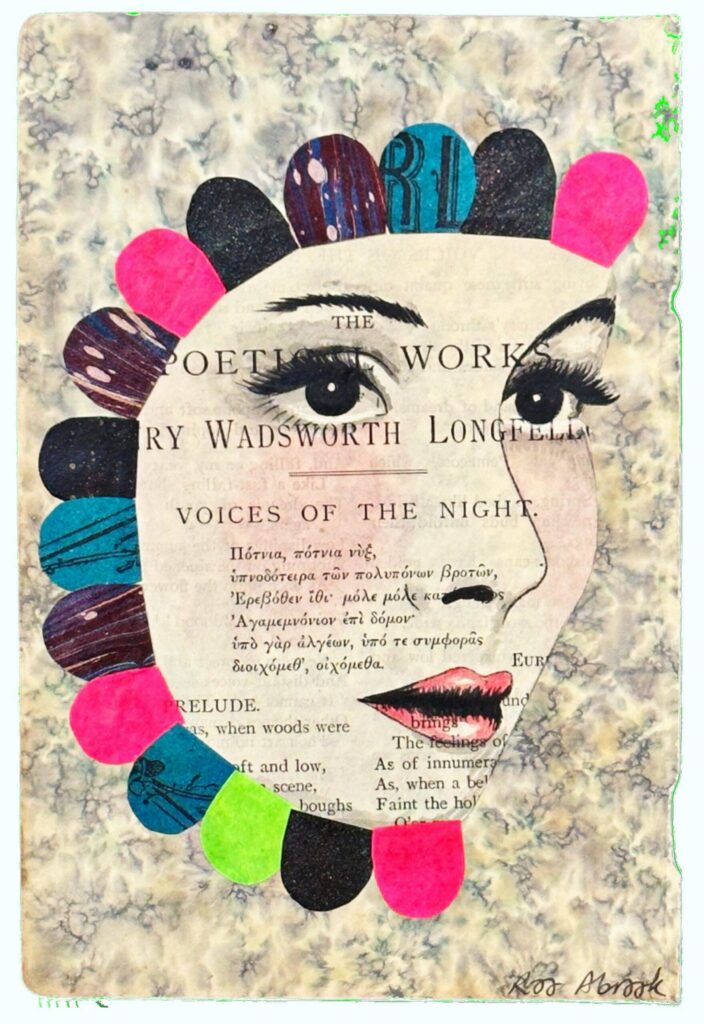 RL
THE
POETICAL WORKS
RY WADSWORTH LONGFELL
VOICES OF THE NIGHT.
Πότνια, πότνια νὺξ,
ὑπνοδότειρα τῶν πολυπόνων βροτῶν,
Ἐρεβόθεν ἴθι· μόλε μόλε κατάπτερος
Ἀγαμεμνόνιον ἐπὶ δόμον·
ὑπὸ γὰρ ἀλγέων, ὑπό τε συμφορᾶς
διοιχόμεθ', οἰχόμεθα.
EUR
PRELUDE.
as, when woods were
oft and low,
scene,
boughs
und
brings
The feelings of
As of innumera
As, when a bel
Faint the hol
O'er